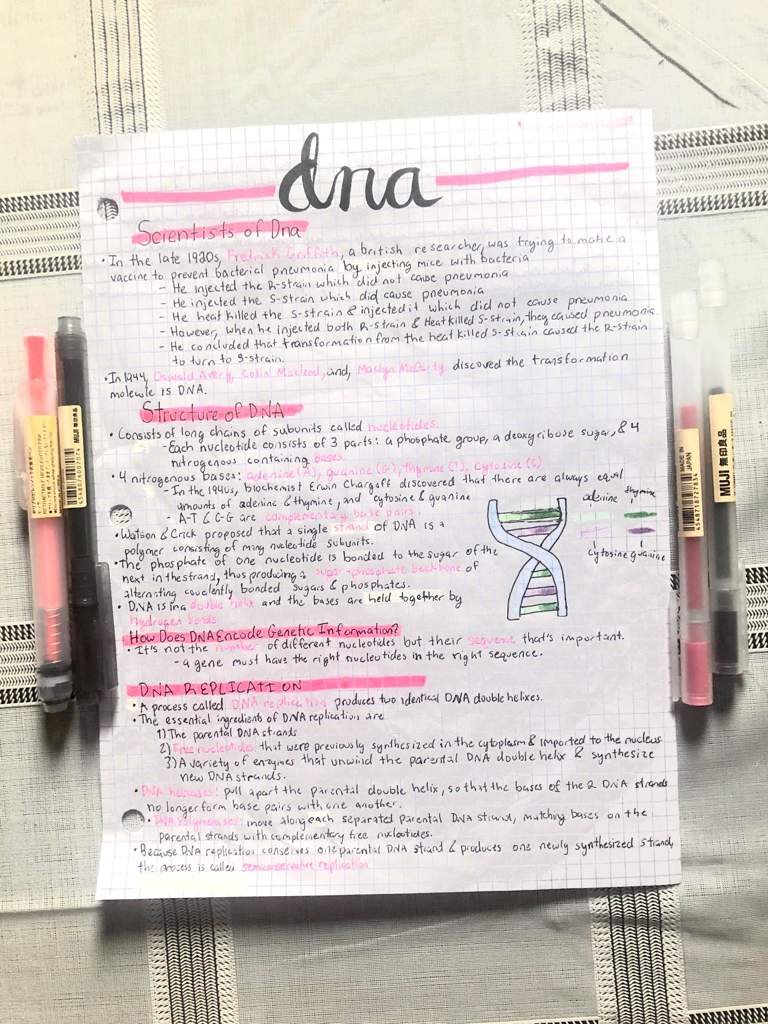 dna
Scientists of Dna
• In the late 1920s, Fredrick Griffith, a british researcher, was trying to make a
vaccine to prevent bacterial pneumonia by injecting mice with bacteria
- He injected the R-strain which did not cause pneumonia
- He injected the S-strain which did cause pneumonia
- He heat killed the S-strain & injected it which did not cause pneumonia
- However, when he injected both R-strain & Heat killed S-strain, they caused pneumonia
- He concluded that transformation from the heat killed S-strain caused the R-strain
to turn to S-strain.
• In 1944, Oswald Avery, Colin Macleod, and, Maclyn McCarty discoved the transformation
molecule is DNA.
Structure of DNA
• Consists of long chains of subunits called nucleotides.
- Each nucleotide consists of 3 parts: a phosphate group, a deoxyribose sugar, & 4
nitrogenous containing bases.
• 4 nitrogenous bases: adenine (A), guanine (G), thymine (T), cytosine (C)
- In the 1940s, biochemist Erwin Chargaff discovered that there are always equal
amounts of adenine & thymine, and cytosine & guanine
- A-T & C-G are complementary base pairs.
adenine thymine
cytosine guanine
• Watson & Crick proposed that a single strand of DNA is a
polymer consisting of many nucleotide subunits.
• The phosphate of one nucleotide is bonded to the sugar of the
next in the strand, thus producing a sugar-phosphate backbone of
alternating covalently bonded sugars & phosphates.
• DNA is in a double helix and the bases are held together by
hydrogen bonds
How Does DNA Encode Genetic Information?
• It's not the number of different nucleotides but their sequence that's important.
- a gene must have the right nucleotides in the right sequence.
DNA REPLICATION
• A process called DNA replication produces two identical DNA double helixes.
• The essential ingredients of DNA replication are
1) The parental DNA stands
2) Free nucleotides that were previously synthesized in the cytoplasm & imported to the nucleus
3) A variety of enzymes that unwind the parental DNA double helix & synthesize
new DNA strands.
• DNA helicases: pull apart the parental double helix, so that the bases of the 2 DNA strands
no longer form base pairs with one another.
• DNA Polymerases: move along each separated Parental DNA strand, matching bases on the
Parental strands with complementary free nucleotides.
• Because DNA replication conserves one parental DNA strand & produces one newly synthesized strand,
the process is called semiconservative replication
MUJI 無印良品
4548718727834
MADE IN JAPAN
MUJI 無印良品